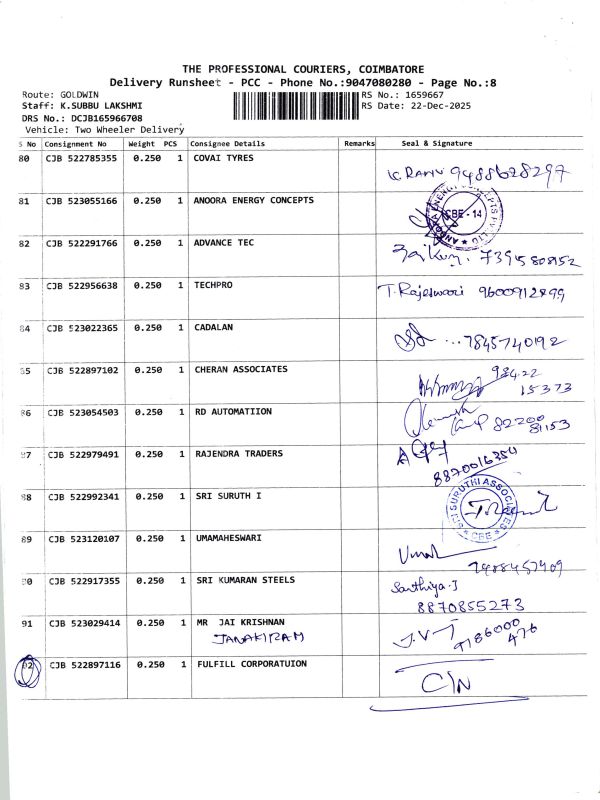 THE PROFESSIONAL COURIERS, COIMBATORE
Delivery Runsheet - PCC - Phone No.:9047080280 - Page No.:8
Route: GOLDWIN RS No.: 1659667
Staff: K.SUBBU LAKSHMI RS Date: 22-Dec-2025
DRS No.: DCJB165966708
Vehicle: Two Wheeler Delivery
S No Consignment No Weight PCS Consignee Details Remarks Seal & Signature
80 CJB 522785355 0.250 1 COVAI TYRES 9488628297
81 CJB 523055166 0.250 1 ANOORA ENERGY CONCEPTS CBE - 14
82 CJB 522291766 0.250 1 ADVANCE TEC
83 CJB 522956638 0.250 1 TECHPRO T. Rajeswari
84 CJB 523022365 0.250 1 CADALAN 7845740192
85 CJB 522897102 0.250 1 CHERAN ASSOCIATES 98422
15373
86 CJB 523054503 0.250 1 RD AUTOMATIION 82200
81153
87 CJB 522979491 0.250 1 RAJENDRA TRADERS
8870016354
88 CJB 522992341 0.250 1 SRI SURUTH I SURUTHI ASSOCIATES CBE
89 CJB 523120107 0.250 1 UMAMAHESWARI
90 CJB 522917355 0.250 1 SRI KUMARAN STEELS Sathiya.J
8870855273
91 CJB 523029414 0.250 1 MR JAI KRISHNAN J.V.J
JANAKIRAM
92 CJB 522897116 0.250 1 FULFILL CORPORATUION
C/N